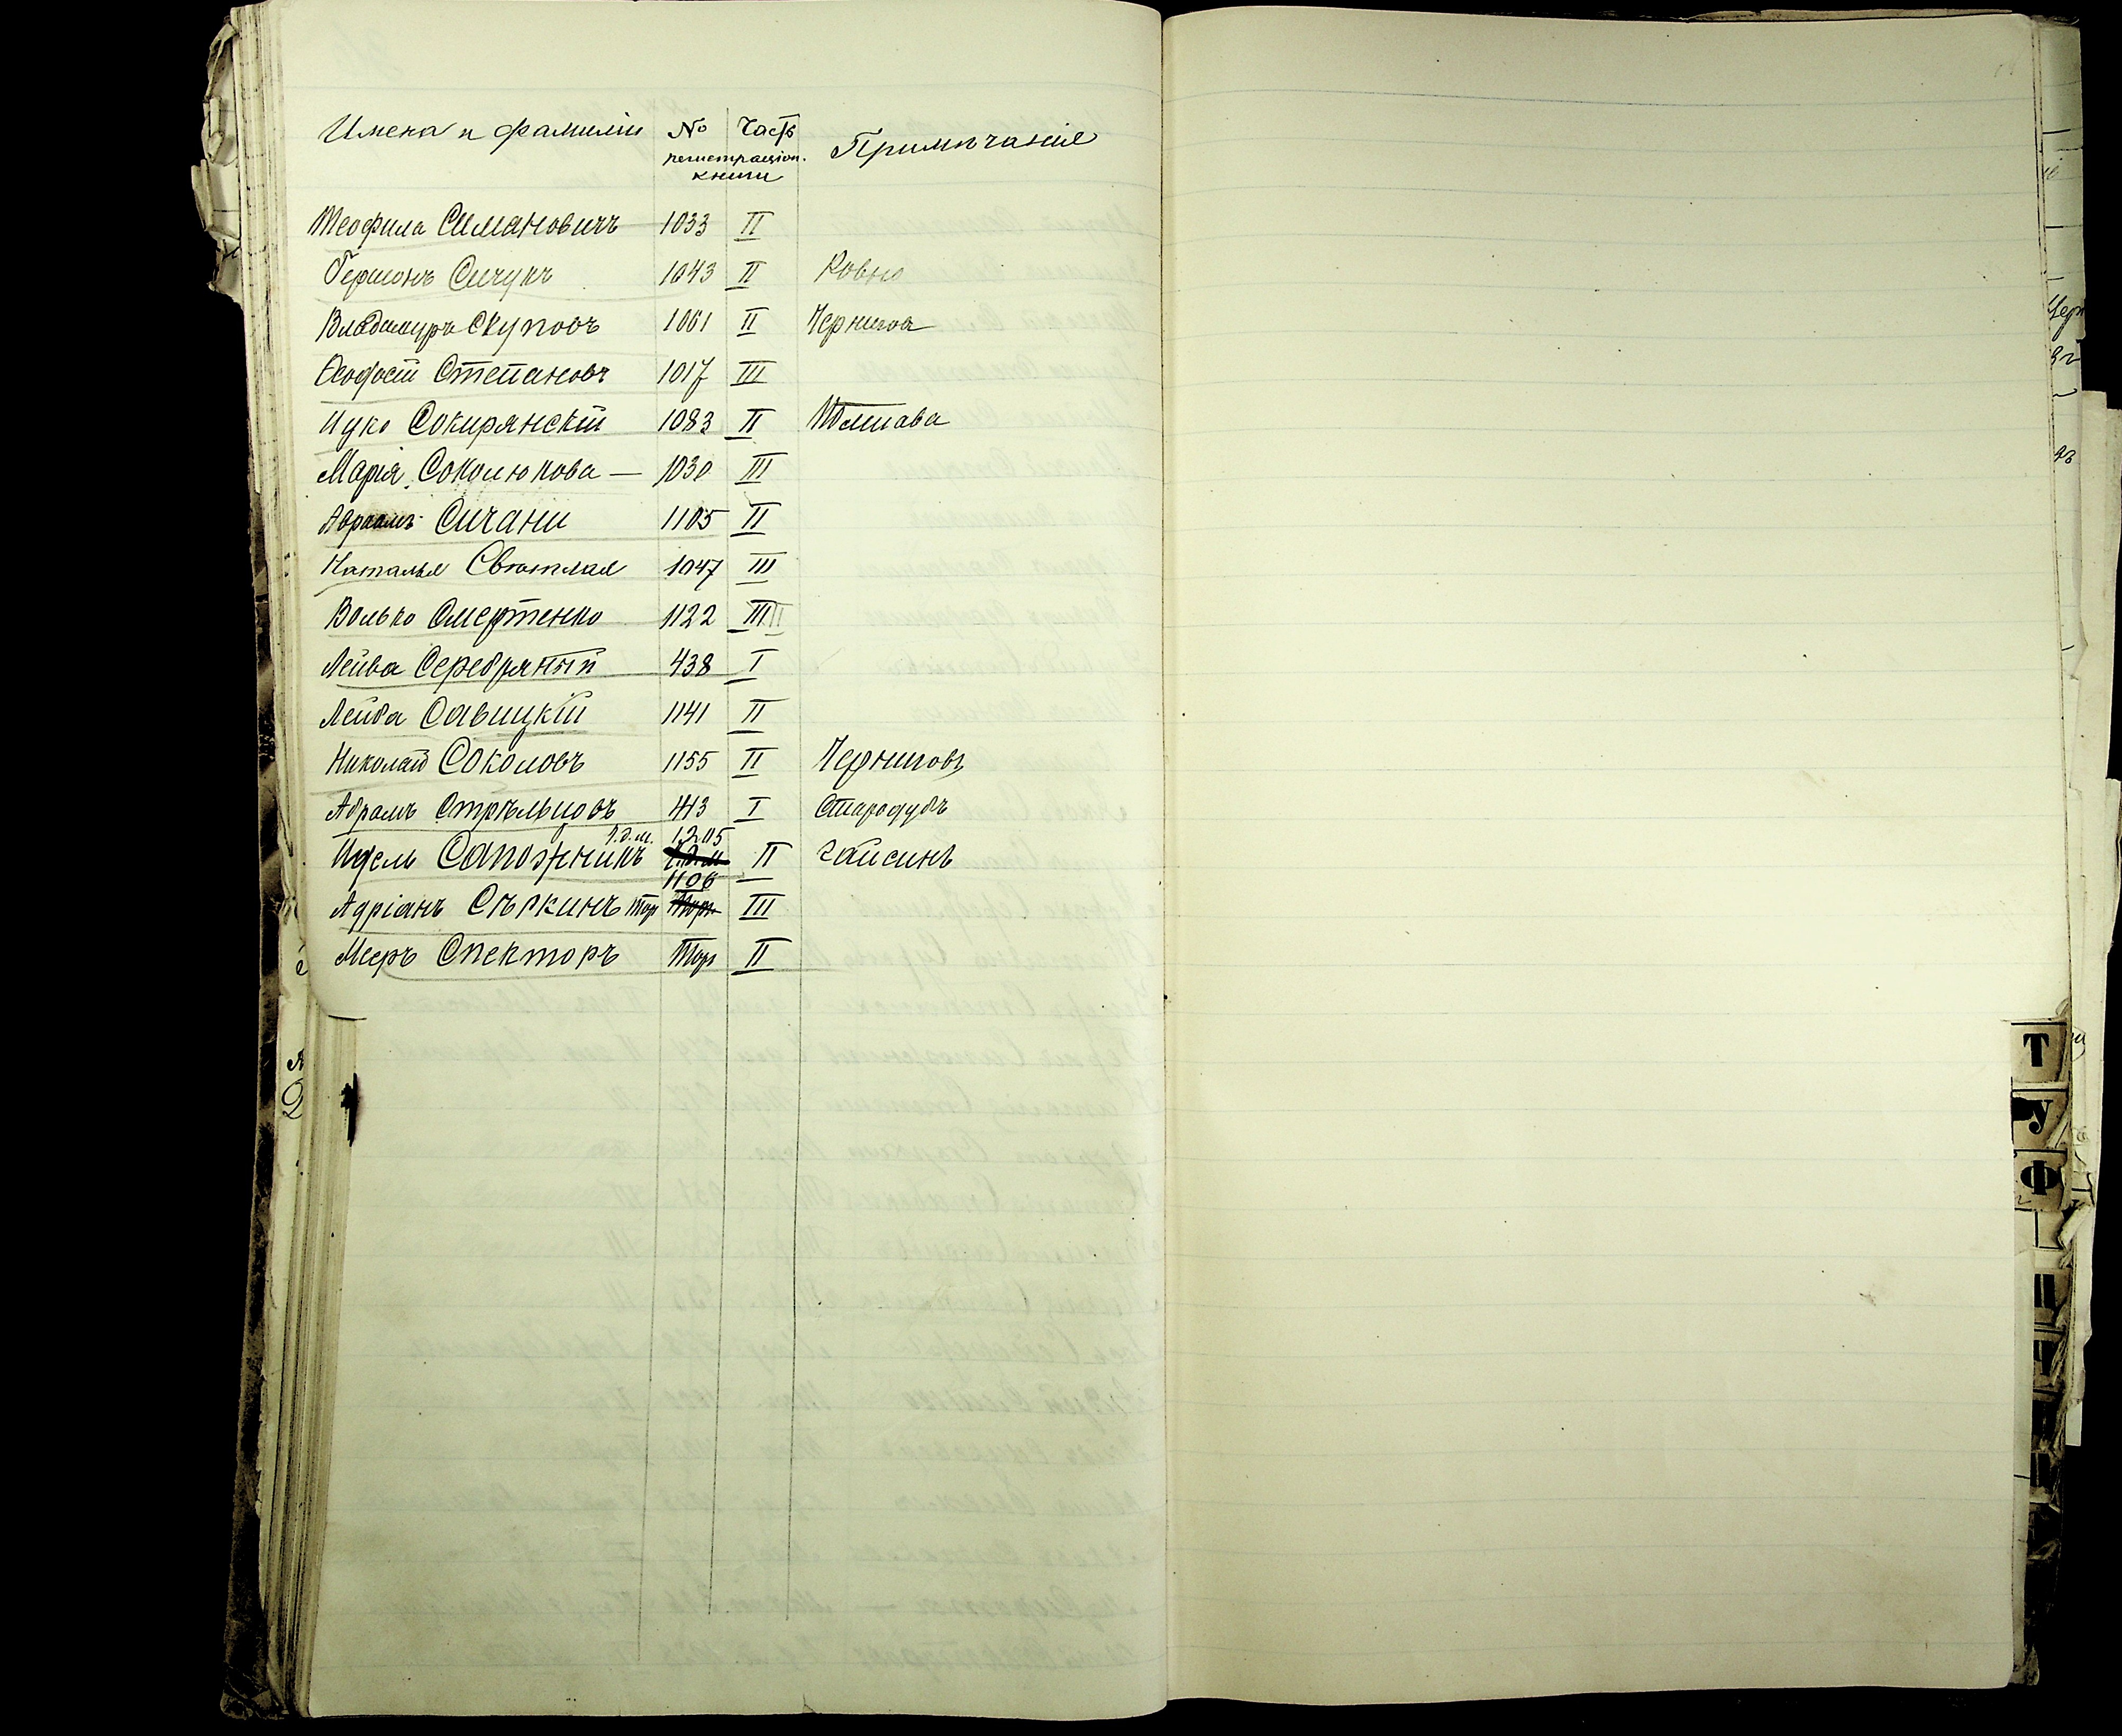 Имена и фамиліи № Часть Примѣчанія
регистраціон.
книги
Теофила Симановичъ 1033 II
Гершонъ Сичукъ 1043 II Ровно
Владимиръ Скуповъ 1061 II Чернигов
Ѳеодосій Степановъ 1017 III
Ицко Сокирянскій 1083 II Полтава
Марія Соколюкова — 1030 III
Авраамъ Сичани 1105 II
Наталья Свѣтлая 1047 III
Волько Смертенко 1122 III II
Лейба Серебряный 438 I
Лейба Савицкій 1141 II
Николай Соколовъ 1155 II Черниговъ
Абрамъ Стрѣльцовъ 443 I Стародубъ
Т.д.м. 1205
Идель Сапожникъ II Гайсинъ
1106
Адріанъ Сѣркинъ Тор III
Мееръ Спекторъ Тор II
Т
У
Ф